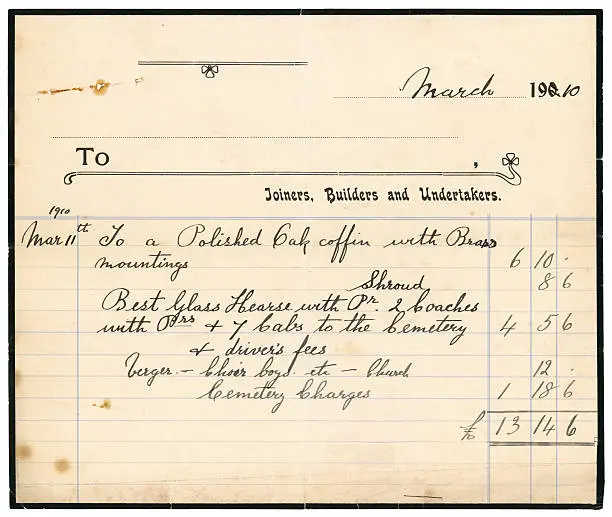 March 190.10
To ,
Joiners, Builders and Undertakers.
1910
Mar 11th To a Polished Oak coffin with Brass
mountings 6 10 .
Shroud 8 6
Best Glass Hearse with Pr. 2 Coaches
with Prs & 7 Cabs to the Cemetery 4 5 6
& driver's fees
Verger - Choir boys etc - Church 12 .
Cemetery Charges 1 18 6
£ 13 14 6